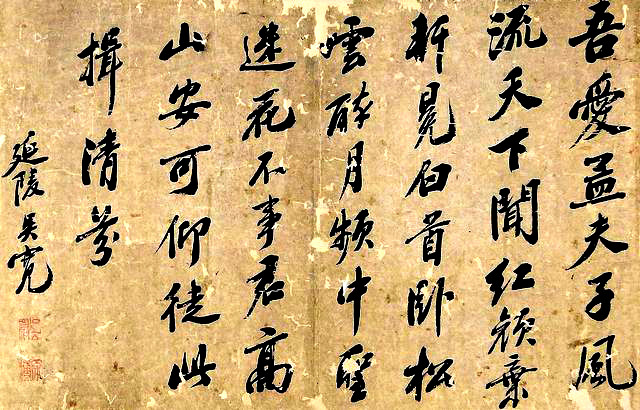 吾愛孟夫子風
流天下聞紅顏棄
軒冕白首臥松
雲醉月頻中聖
迷花不事君高
山安可仰徒此
揖清芬
延陵吳寬